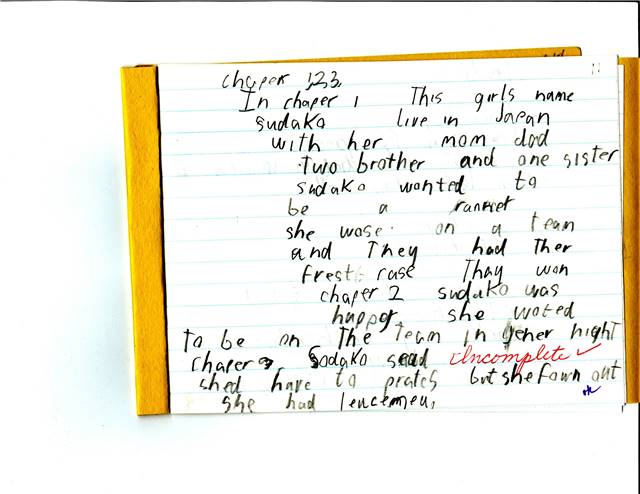 chaper 1,2,3,
In chaper 1 This girls name
sudako live in Japan
with her mom dad
two brother and one sister
sudako wanted to
be a runner
she wase on a team
and They had Ther
frest rase Thay won
chaper 2 sudako was
happy she woted
to be on The team in
chaper 3 Sodako sead Incomplete
shed have to prates but she fown out
she had leucemeu,